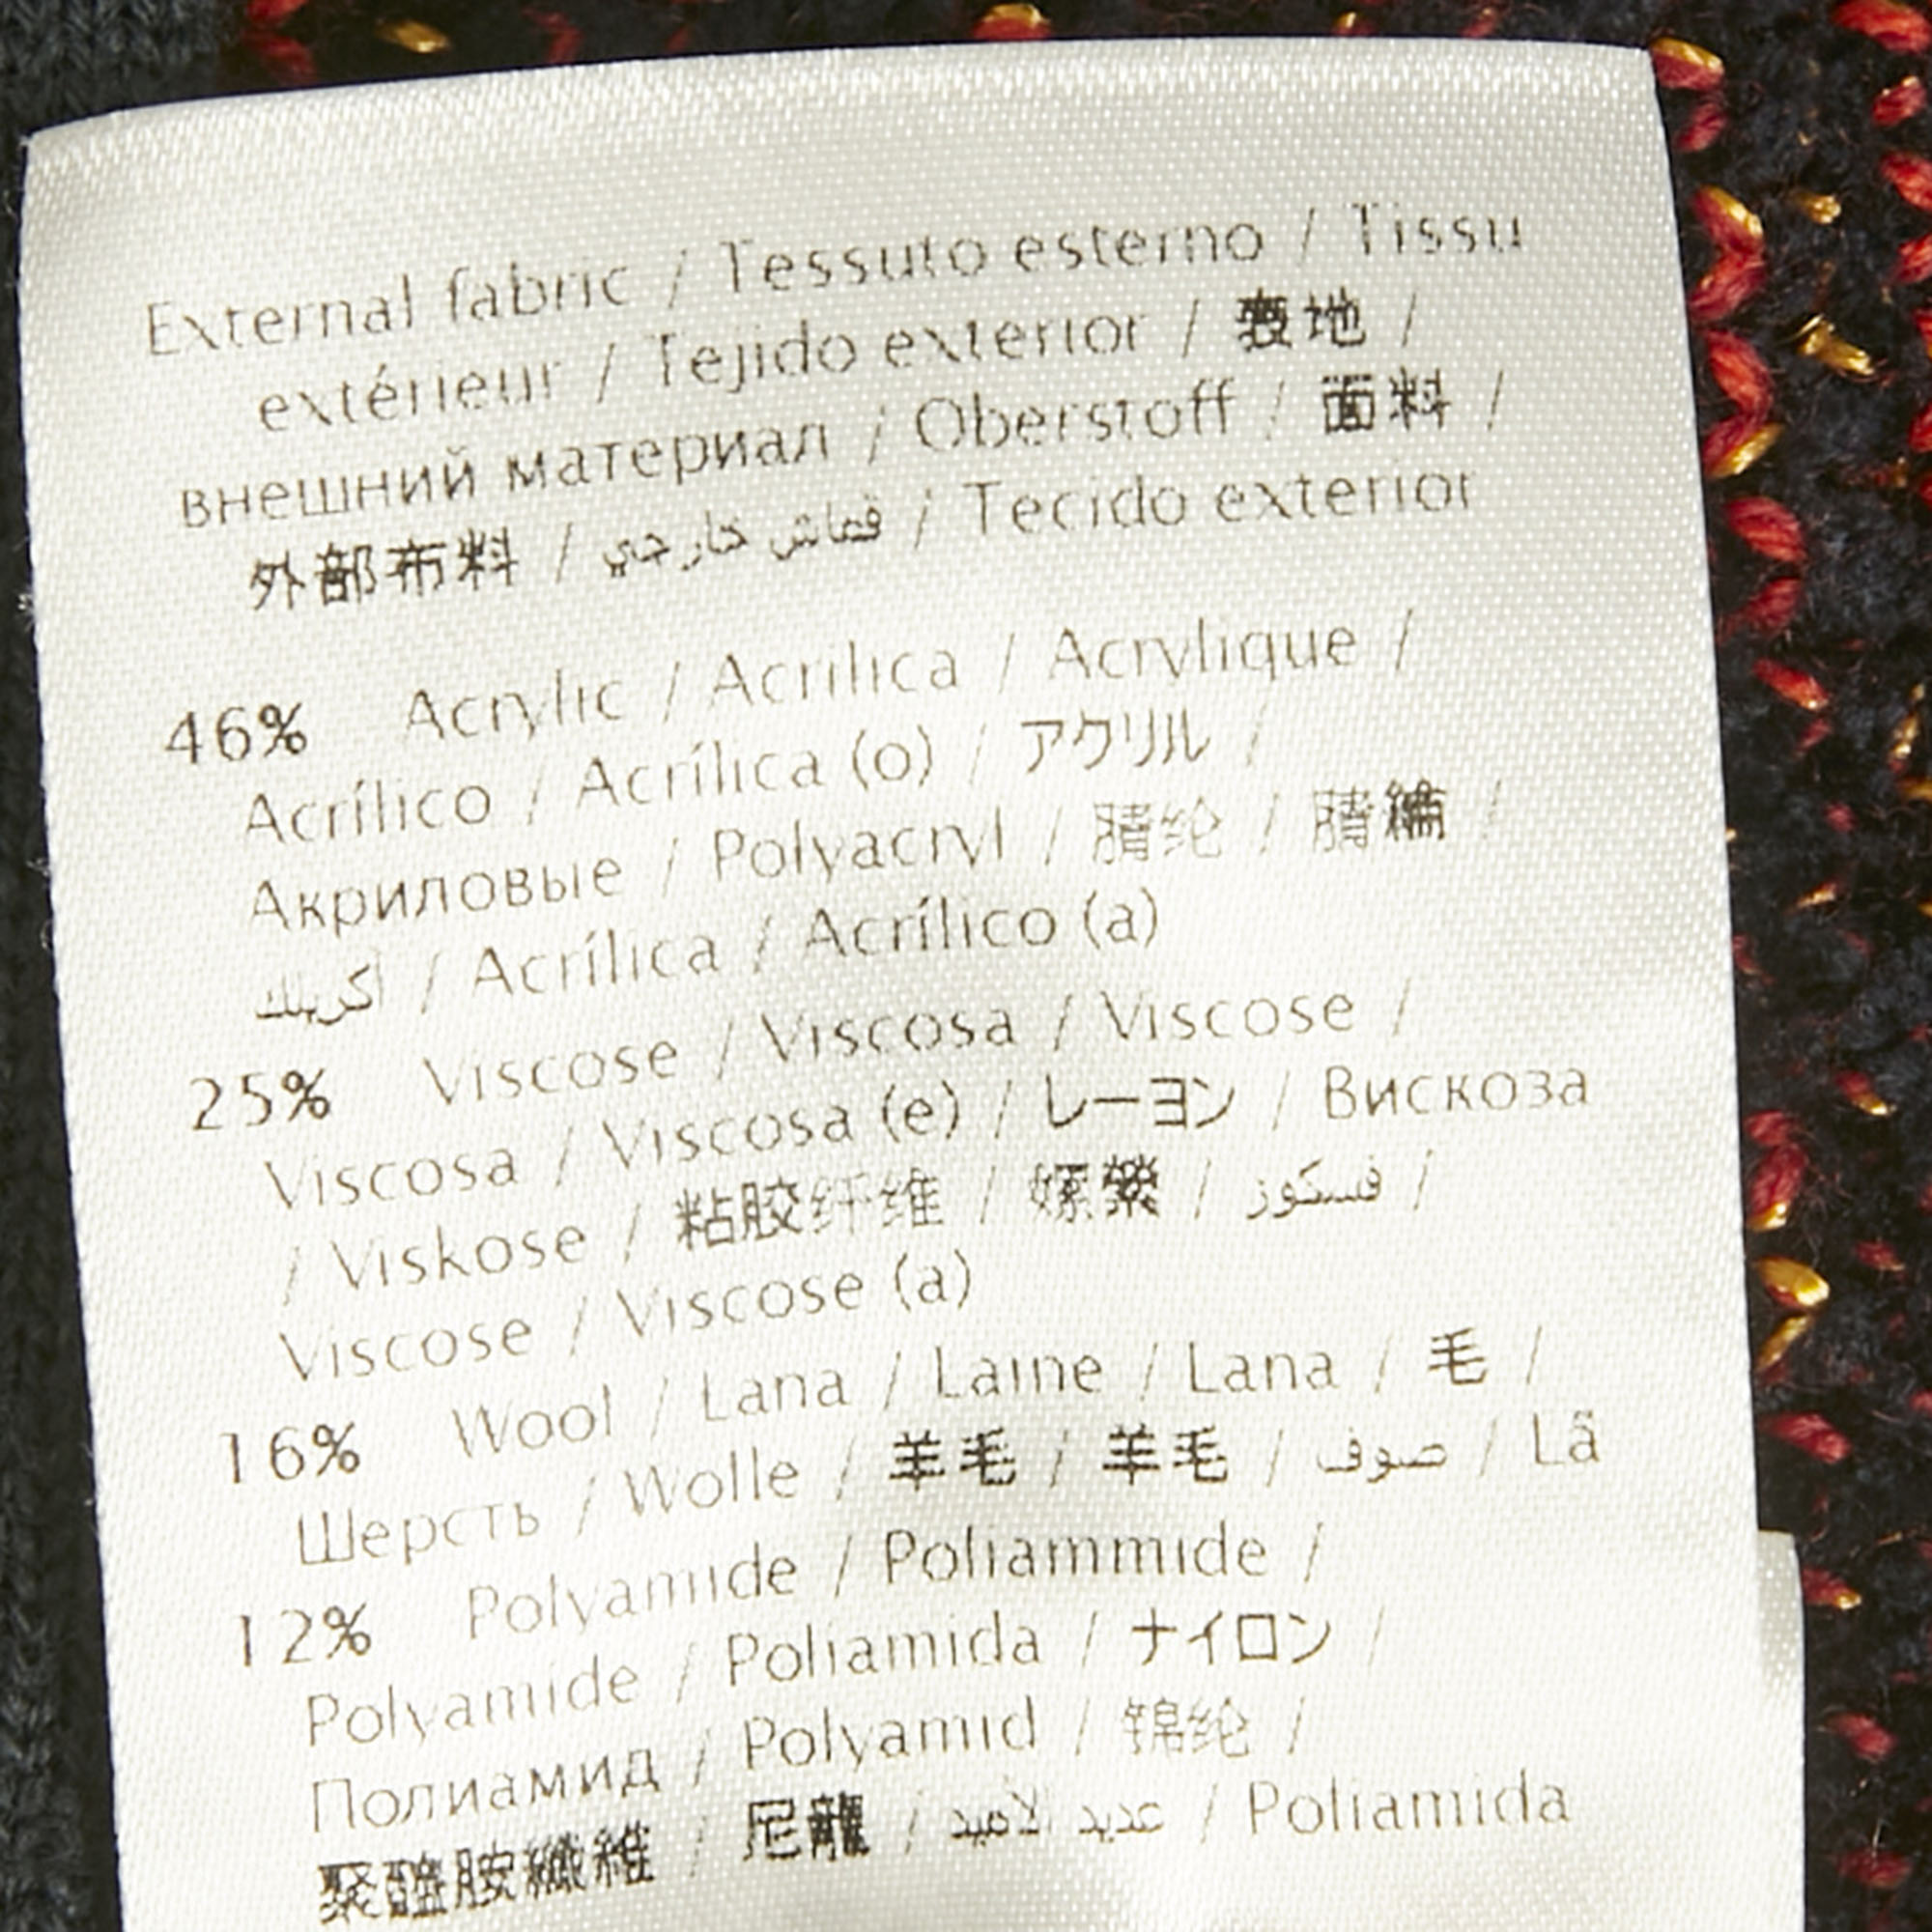 External fabric / Tessuto esterno / Tissu
extérieur / Tejido exterior / 表地 /
внешний материал / Oberstoff / 面料 /
外部布料 / قماش خارجي / Tecido exterior
46% Acrylic / Acrilica / Acrylique /
Acrílico / Acrílica (o) / アクリル /
Акриловые / Polyacryl / 腈纶 / 腈綸 /
أكريلك / Acrílica / Acrílico (a)
25% Viscose / Viscosa / Viscose /
Viscosa / Viscosa (e) / レーヨン / Вискоза
/ Viskose / 粘胶纤维 / 嫘縈 / فسكوز /
Viscose / Viscose (a)
16% Wool / Lana / Laine / Lana / 毛 /
Шерсть / Wolle / 羊毛 / 羊毛 / صوف / Lã
12% Polyamide / Poliammide /
Polyamide / Poliamida / ナイロン /
Полиамид / Polyamid / 锦纶 /
聚醯胺纖維 / 尼龍 / عديد الاميد / Poliamida